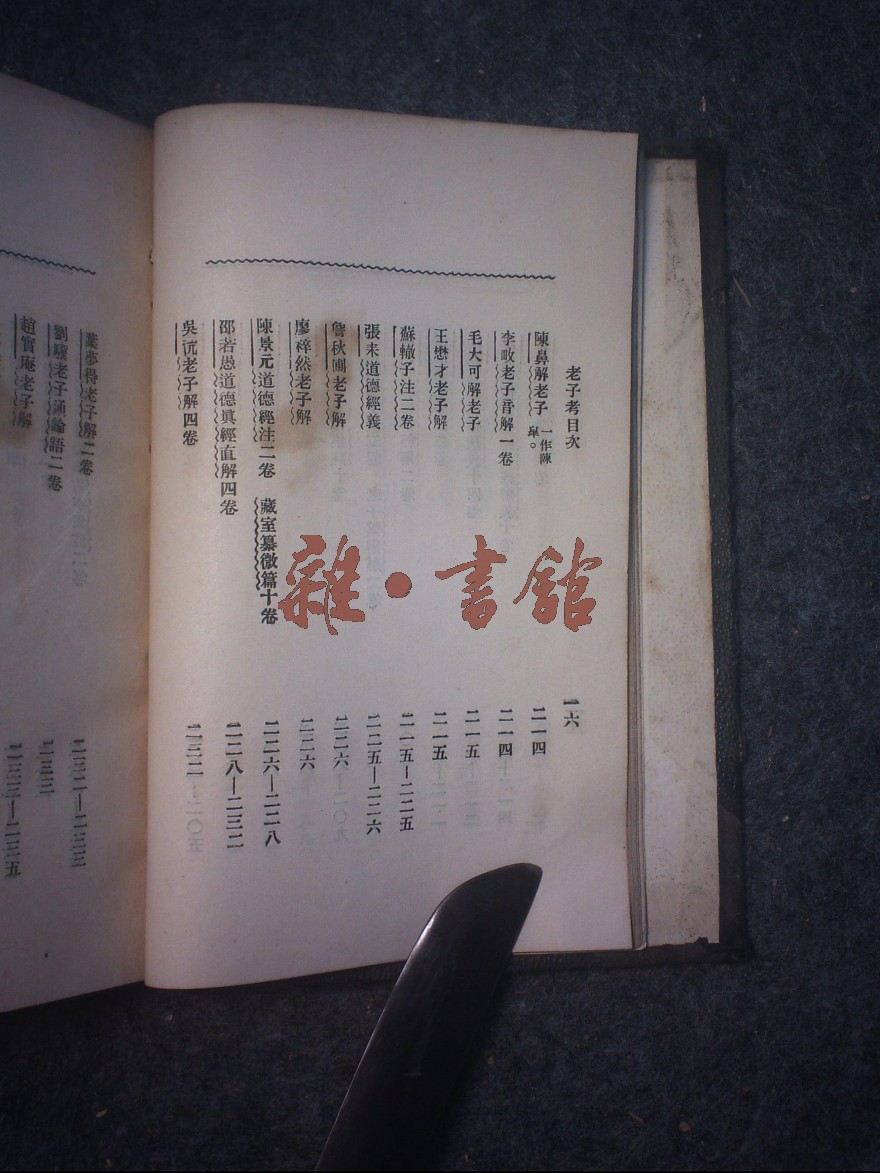 老子考目次
一六
陳鼻解老子 一作陳皐。
二一四
李畋老子音解一卷
二一四
毛大可解老子
二一五
王懋才老子解
二一五
蘇轍子注二卷
二一五—二二五
張耒道德經義
二二五—二二六
詹秋圃老子解
二二六
廖粹然老子解
二二六
陳景元道德經注二卷 藏室纂微篇十卷
二二六—二二八
邵若愚道德眞經直解四卷
二二八—二三二
吳沆老子解四卷
二三二
葉夢得老子解二卷
二三二—二三三
劉驥老子通論語二卷
二三三
趙實庵老子解
二三三—二三五
雜·書館